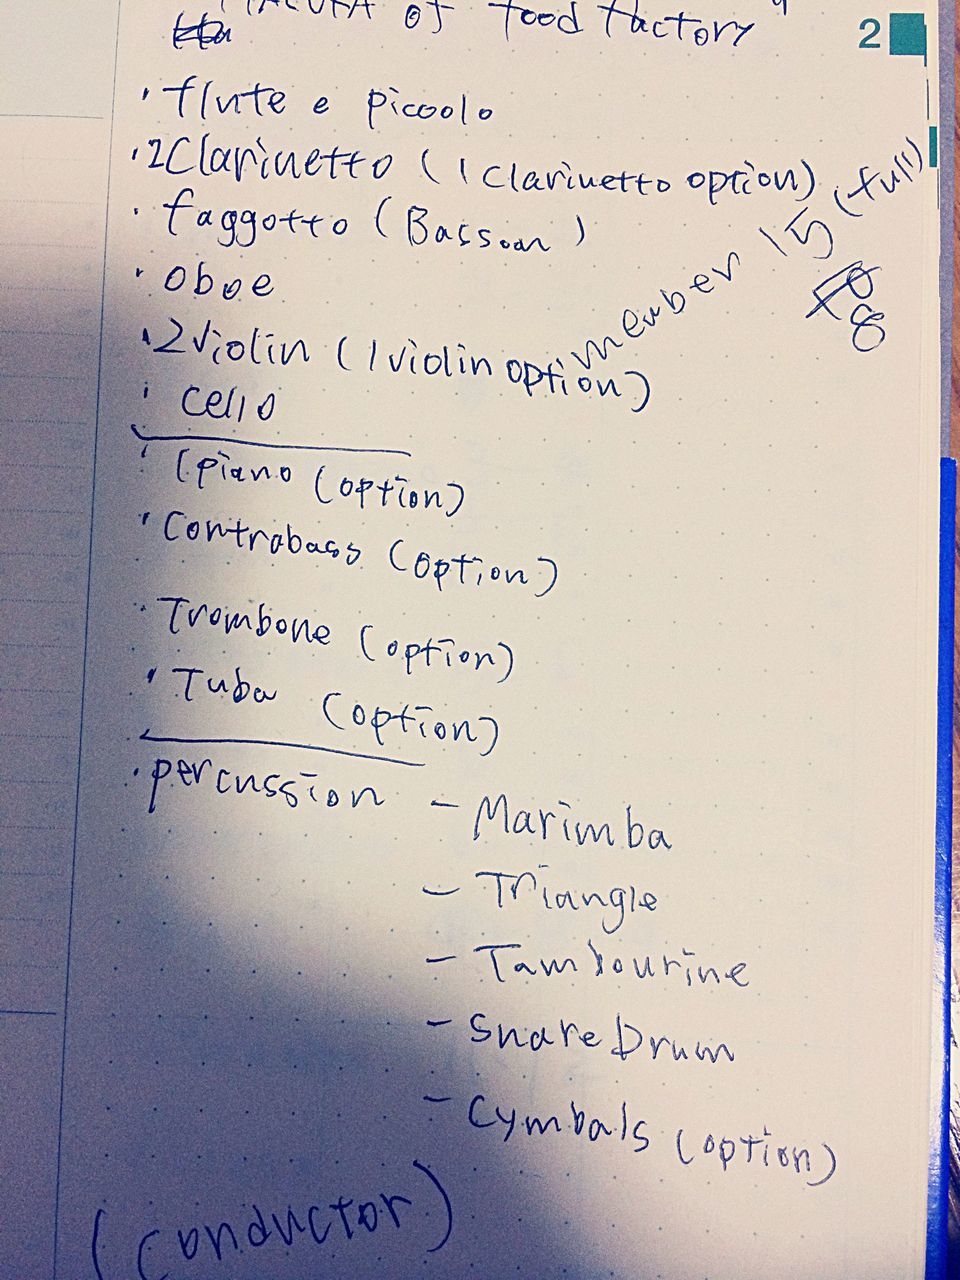 of food factory"
2
・flute e piccolo
・2Clarinetto (1 Clarinetto option)
・faggotto (Bassoon)
・oboe
・2violin (1violin option)
・cello
member 15 (full)
8
・(piano (option)
・Contrabass (option)
・Trombone (option)
・Tuba (option)
・percussion - Marimba
- Triangle
- Tambourine
- Snare Drum
- Cymbals (option)
(conductor)